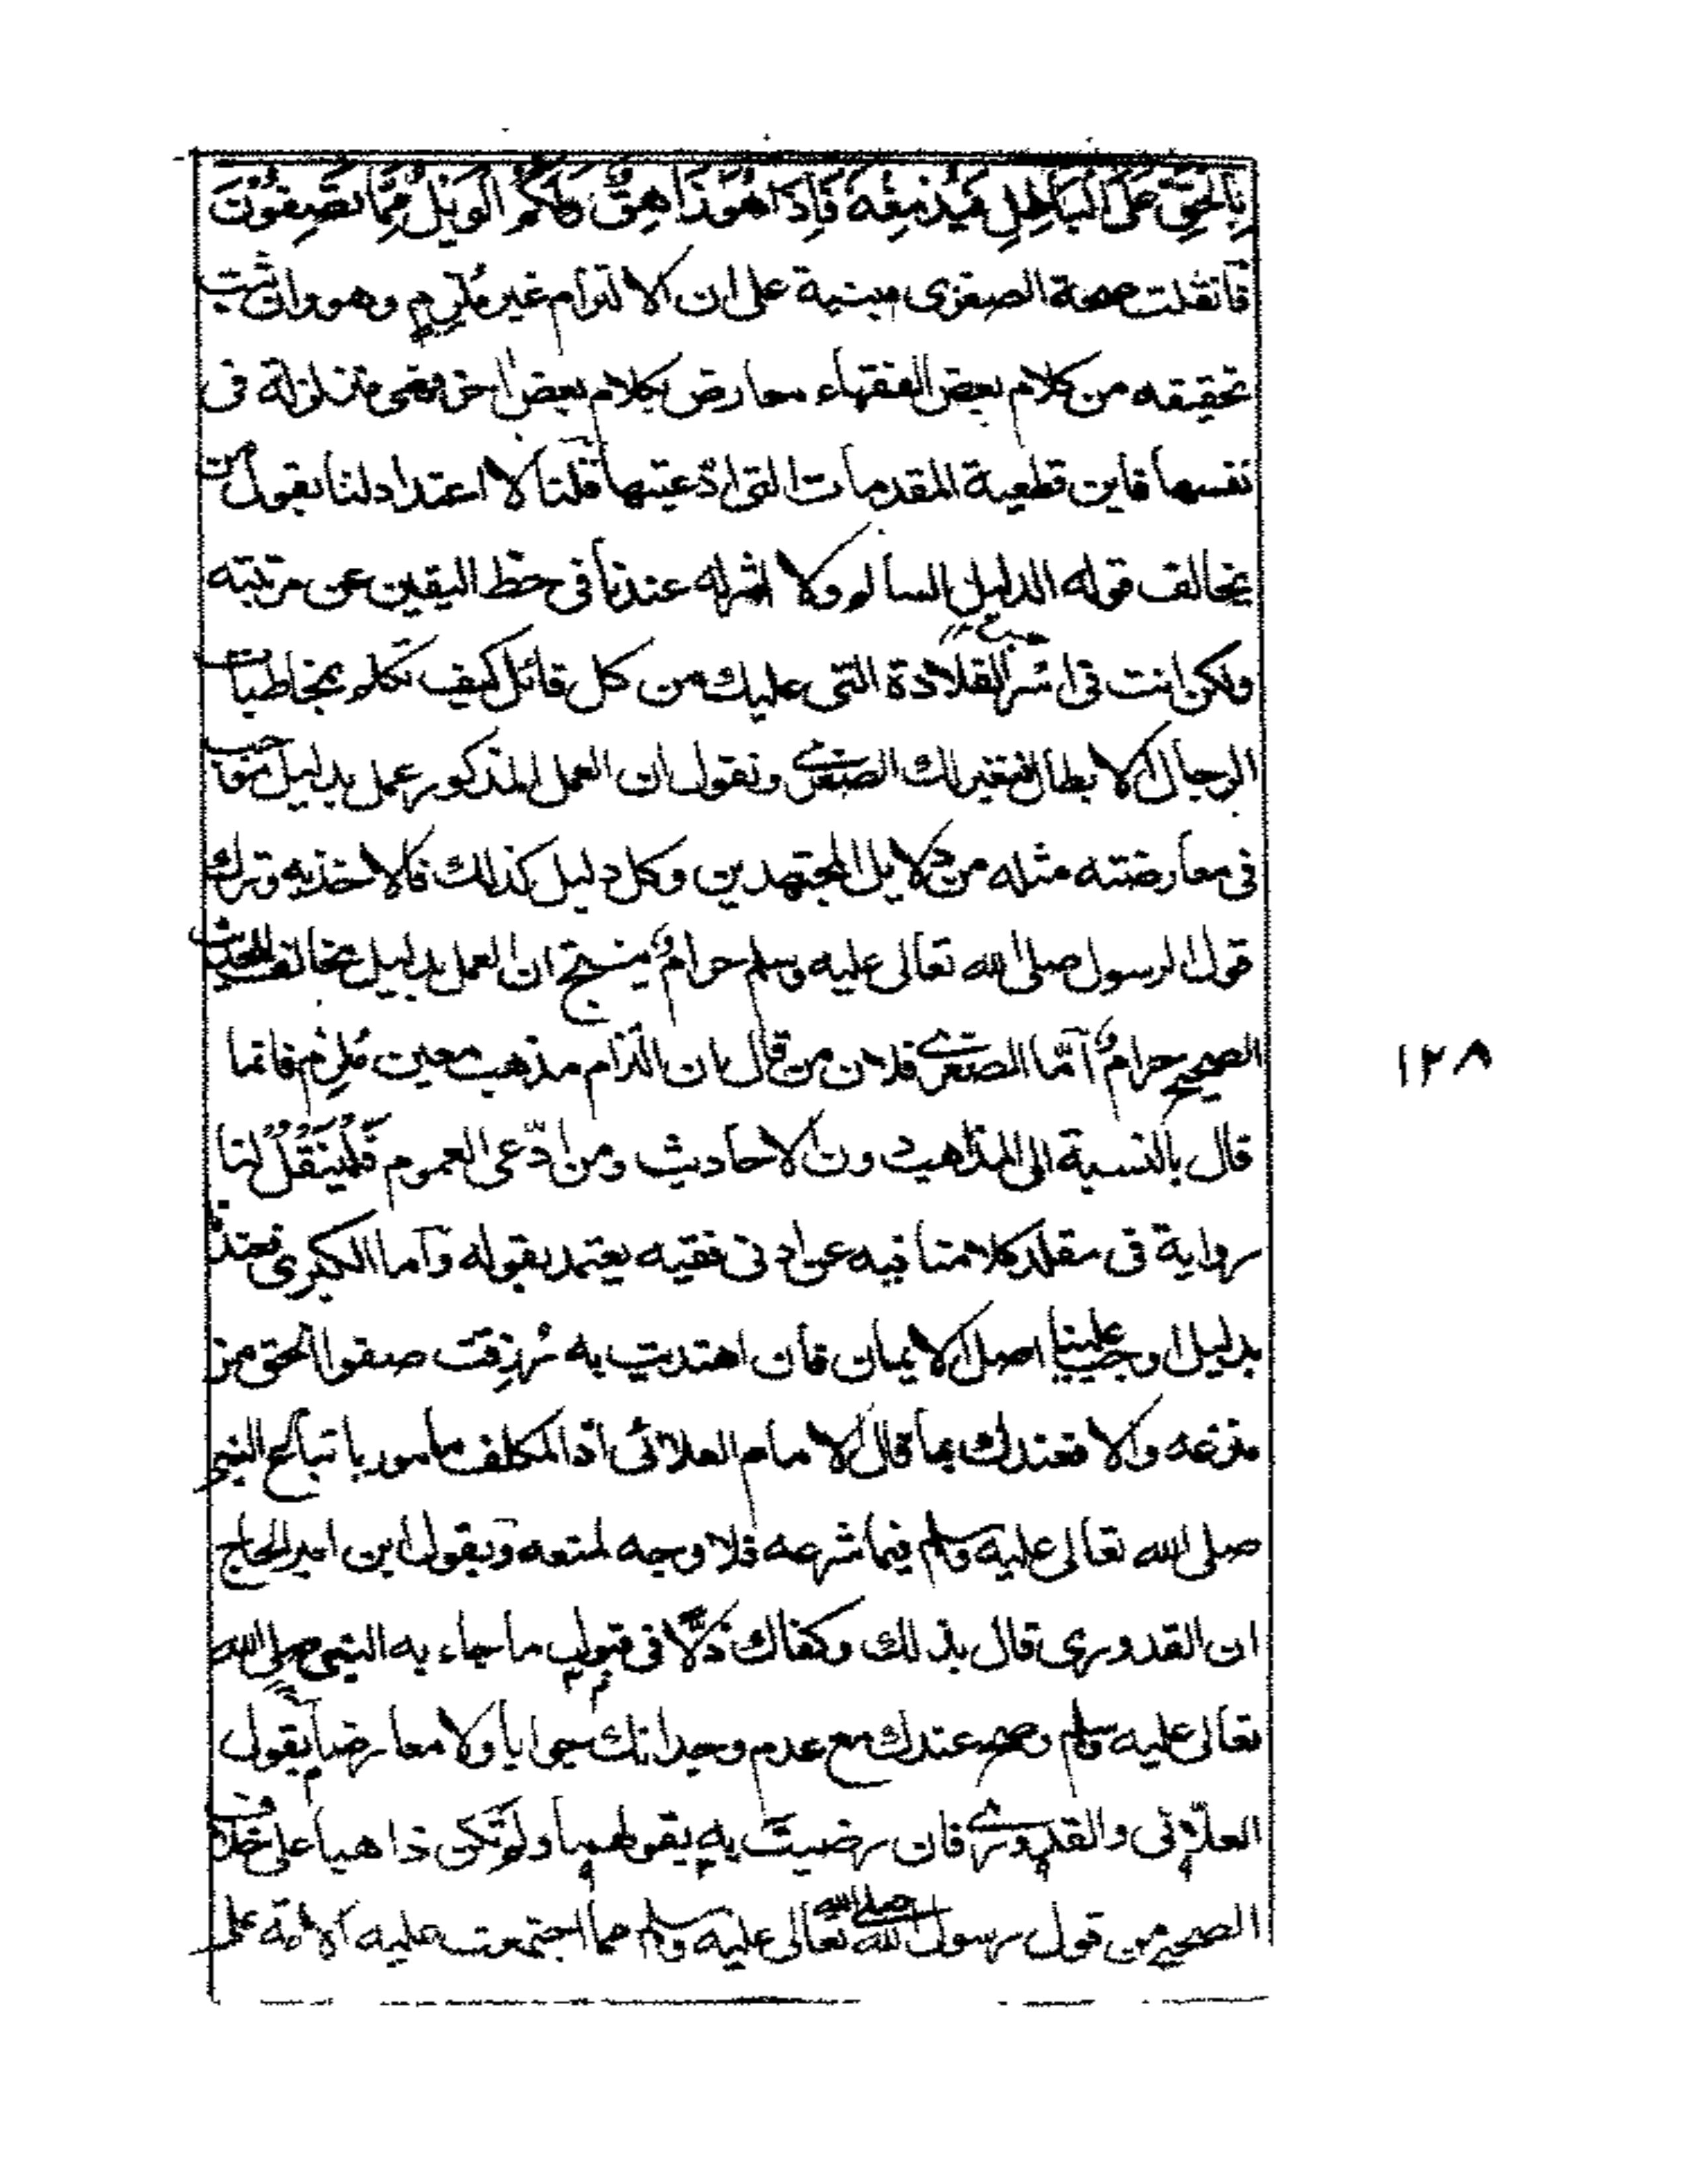 بِالْحَقِّ عَلَى الْبَاطِلِ فَيَدْمَغُهُ فَإِذَا هُوَ زَاهِقٌ وَلَكُمُ الْوَيْلُ مِمَّا تَصِفُوْنَ
فآنقلت صحة الصغرى مبنية على ان الالتزام غير مُلزِم وهو وان ثبت
تحقيقه من كلام بعض الفقهاء معارض بكلام بعض اخر فهى متزلزلة فى
نفسها فاين قطعية المقدمات التى ادّعيتها قلنا لا اعتداد لنا بقول من
يخالف قوله الدليل السالم ولا اثر له عندنا فى حط اليقين عن مرتبته
ولكن انت فى اسْر القلادة التى عليك من كل قائل كيف نكلم بمخاطبات
الرجال الابطال فنغير لك الصغرى ونقول ان العمل المذكور عمل بدليل
فى معارضته مثله من دلايل المجتهدين وكل دليل كذلك فالاخذ به وترك
قول الرسول صلى الله تعالى عليه وسلم حرامٌ ينتج ان العمل بدليل يخالف الحديث
الصحيح حرامٌ آمّا الصغرى فلان من قال بان التزام مذهب معين مُلزِم فانما
قال بالنسبة الى المذاهب دون الاحاديث ومن ادّعى العموم فَلْيَنْقُلْ لنا
رواية فى مقلد كلامنا فيه عن ادنى فقيه يعتمد بقوله وآما الكبرى فعندنا
بدليل اوجب علينا اصل الايمان فان اهتديت به رُزِقتَ صفو الحق من
منزعه والا فعندك بما قال الامام العلائى اذ المكلف مأمور باتباع النبى
صلى الله تعالى عليه وسلم فيما شرعه فلا وجه لمنعه وبقول ابن امير الحاج
ان القدورى قال بذلك وكفاك ذلّا فى قبول ما جاء به النبى صلى الله
تعالى عليه وسلم وصح عندك مع عدم وجدانك جوابا ولا معارضا بقول
العلائى والقدورى فان رضيتَ به بقولهما ولم تكن ذاهبا على خلاف
الصحيح من قول رسول الله صلى الله تعالى عليه وسلم مما اجتمعت عليه الائمة على
١٢٨